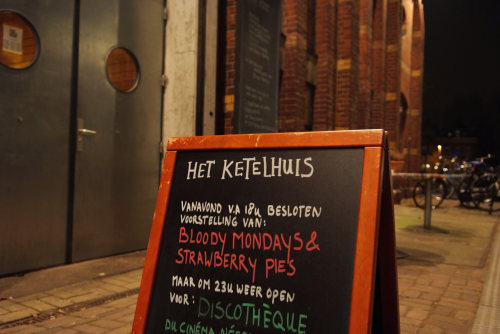 HET KETELHUIS
VANAVOND V.A 18U BESLOTEN
VOORSTELLING VAN:
BLOODY MONDAYS &
STRAWBERRY PIES
MAAR OM 23U WEER OPEN
VOOR: DISCOTHÈQUE
DU CINÉMA